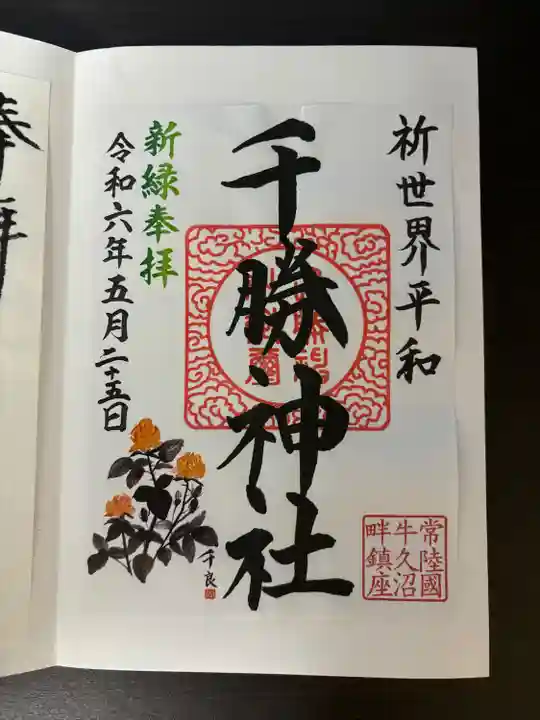 祈世界平和
千勝神社
新緑奉拝
令和六年五月二十五日
千良
常陸國
牛久沼
畔鎮座
奉拝